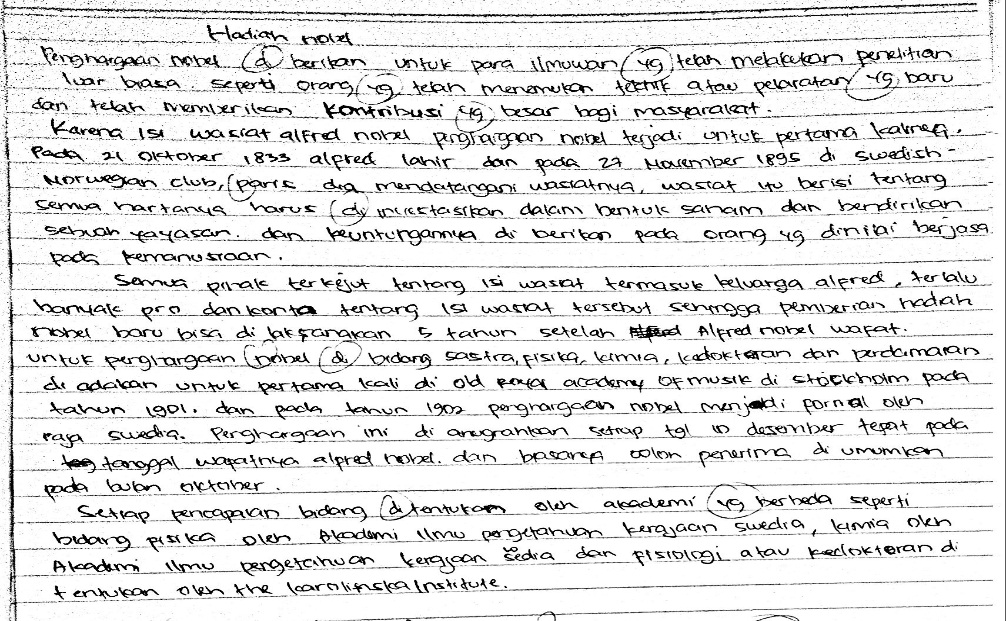 Hadiah nobel
Penghargaan nobel di berikan untuk para ilmuwan yg telah melakukan penelitian
luar biasa seperti orang yg telah menemukan teknik atau pelaratan yg baru
dan telah memberikan kontribusi yg besar bagi masyarakat.
Karena isi wasiat alfred nobel penghargaan nobel terjadi untuk pertama kalinya.
Pada 21 oktober 1833 alpred lahir dan pada 27 November 1895 di swedish-
Norwegian club, (paris dia mendatangani wasiatnya, wasiat itu berisi tentang
semua hartanya harus di investasikan dalam bentuk saham dan bendirikan
sebuah yayasan. dan keuntungannya di berikan pada orang yg dinilai berjasa
pada kemanusiaan.
Semua pihak terkejut tentang isi wasiat termasuk keluarga alpred, terlalu
banyak pro dan konta tentang isi wasiat tersebut sehingga pemberian hadiah
nobel baru bisa di laksangkan 5 tahun setelah Alpred nobel wafat.
untuk perghargaan nobel di bidang sastra, fisika, kimia, kedokteran dan perdamaian
di adakan untuk pertama kali di old academy of musik di stockholm pada
tahun 1901. dan pada tahun 1902 penghargaan nobel menjadi formal oleh
raja swedia. Perghargaan ini di anugrahkan setiap tgl 10 desember tepat pada
tanggal wapatnya alpred nobel. dan calon penerima di umumkan
pada bulan oktober.
Setiap pencapaian bidang di tentukan oleh akademi yg berbeda seperti
bidang pisika oleh Akademi ilmu pengetahuan kerajaan swedia, kimia oleh
Akademi ilmu pengetahuan kerajaan sedia dan fisiologi atau kedokteran di
tentukan oleh the karolinska Institute.